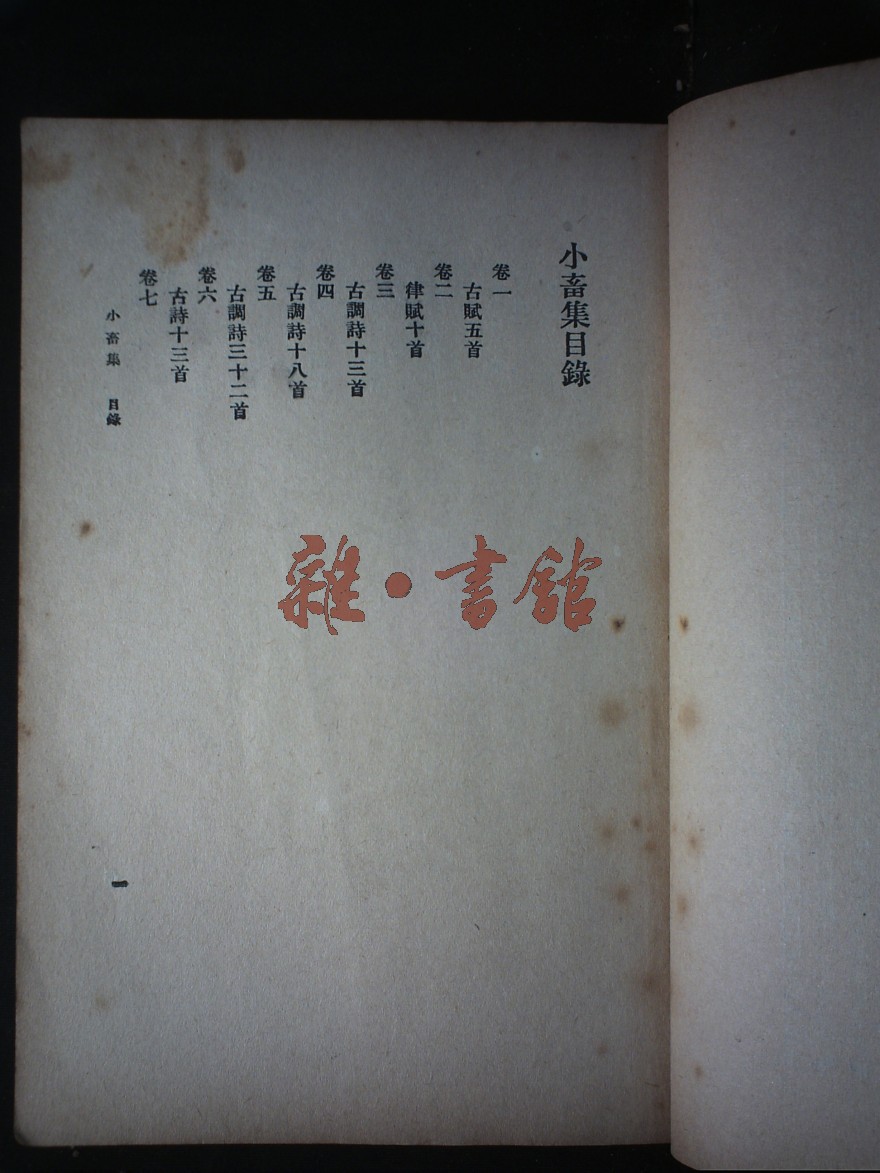 小畜集目錄
卷一
古賦五首
卷二
律賦十首
卷三
古調詩十三首
卷四
古調詩十八首
卷五
古調詩三十二首
卷六
古詩十三首
卷七
小畜集 目錄
一
雜·書館